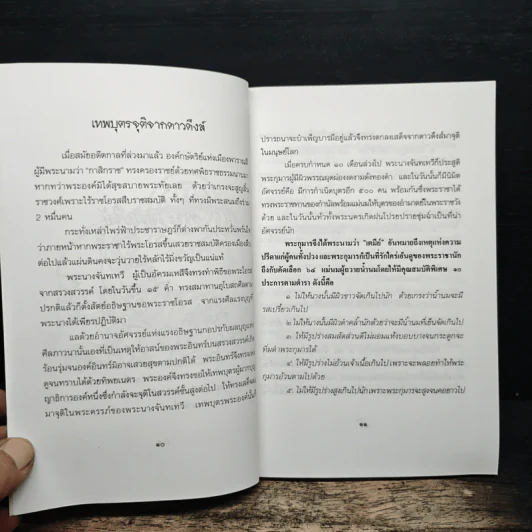 เทพบุตรจุติจากดาวดึงส์
เมื่อสมัยอดีตกาลที่ล่วงมาแล้ว องค์กษัตริย์แห่งเมืองพาราณสี
ผู้มีพระนามว่า "กาสิกราช" ทรงครองราชย์ด้วยทศพิธราชธรรมนานมา
หากทว่าพระองค์มิได้สุขสบายพระทัยเลย ด้วยว่าเกรงจะสูญสิ้น
ราชวงศ์เพราะไร้ราชโอรสสืบราชสมบัติ ทั้งๆ ที่ทรงมีพระสนมถึงร่วม
2 หมื่นคน
กระทั่งเหล่าไพร่ฟ้าประชาราษฎร์ก็ต่างพากันประหวั่นพรั่น
ว่าภายหน้าหากพระราชาไร้พระโอรสขึ้นเสวยราชสมบัติครองเมืองสืบ
ต่อไปแล้วแผ่นดินคงจะวุ่นวายไร้หลักไร้มิ่งขวัญเป็นแน่แท้
พระนางจันทเทวี ผู้เป็นอัครมเหสีจึงทรงทำพิธีขอพระโอรส
จากสรวงสวรรค์ โดยในวันขึ้น ๑๕ ค่ำ ทรงสมาทานอุโบสถศีล
ปรกติแล้วก็ตั้งสัตย์อธิษฐานขอพระราชโอรส จากแรงศีลแรงบุญที่
พระนางได้เพียรปฏิบัติมา
แลด้วยอำนาจอัศจรรย์แห่งแรงอธิษฐานกอปรกับผลบุญ
ศีลภาวนานั้นเองที่เป็นเหตุให้อาสน์ของพระอินทร์บนสวรรค์
ร้อนรุ่มจนองค์อินทร์มิอาจเสวยสุขตามปกติได้ พระอินทร์จึงทรง
ดูจนทราบได้ด้วยทิพยเนตร พระองค์จึงทรงขอให้เทพบุตรผู้มากบุญ
ญาธิการองค์หนึ่งซึ่งกำลังจะจุติในสวรรค์ชั้นสูงต่อไป ให้ทรงเสด็จ
มาจุติในพระครรภ์ของพระนางจันทเทวี เทพบุตรพระองค์นั้น
๑๐
ปรารถนาจะบำเพ็ญบารมีอยู่แล้วจึงทรงตกลงเสด็จจากดาวดึงส์มาจุติ
ในมนุษย์โลก
เมื่อครบกำหนด ๑๐ เดือนล่วงไป พระนางจันทเทวีก็ประสูติ
พระกุมารผู้มีผิวพรรณผุดผ่องงดงามดังทองคำ และในวันนั้นก็มีนิมิต
อัศจรรย์คือ มีการกำเนิดบุตรอีก ๕๐๐ คน พร้อมกันซึ่งพระราชาได้
ทรงพระราชทานของกำนัลพร้อมแม่นมให้บุตรของอำมาตย์ในพระราชวัง
ด้วย และในวันนั้นทั่วทั้งพระนครเกิดฝนโปรยปรายชุ่มฉ่ำเป็นที่น่า
อัศจรรย์นัก
พระกุมารจึงได้พระนามว่า "เตมีย์" อันหมายถึงเหตุแห่งความ
ปรีดาแก่ผู้คนทั้งปวง และพระกุมารก็เป็นที่รักใคร่เอ็นดูของพระราชานัก
ถึงกับคัดเลือก ๖๔ แม่นมผู้ถวายน้ำนมโดยให้มีคุณสมบัติพิเศษ ๑๐
ประการตามตำรา ดังนี้คือ
๑ ไม่ให้นางนั้นมีผิวขาวจัดเกินไปนัก ด้วยเกรงว่าน้ำนมจะมี
รสเปรี้ยวเกินไป
๒ ไม่ให้นางนั้นมีผิวดำคล้ำนักด้วยจะมีน้ำนมที่เย็นจัดเกินไป
๓. ให้มีรูปร่างสมสัดส่วนดีไม่ผอมแห้งบอบบางจนกระดูกจะ
ทิ่มตำพระกุมารได้
๔. ให้มีรูปร่างไม่อ้วนเจ้าเนื้อเกินไปเพราะจะพลอยทำให้พระ
กุมารอ้วนตามไปด้วย
๕. ไม่ให้มีรูปร่างสูงเกินไปนักเพราะพระกุมารจะสูงจนคอยาวไป
๑๑